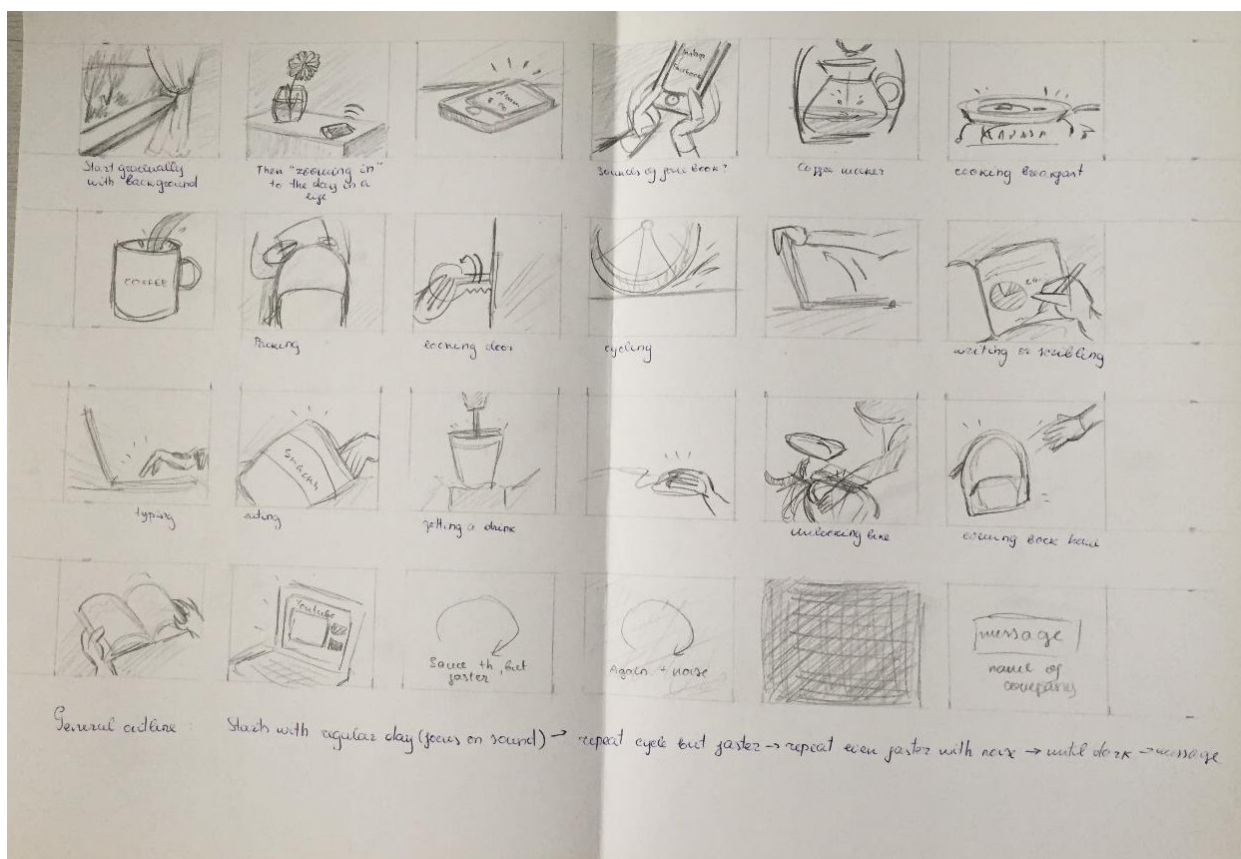 Start gradually
with background
Then "zooming in"
to the day in a
life
Alarm
Instagr
Facebook
sounds of
Coffee maker
cooking breakfast
COFFEE
Packing
locking door
cycling
writing or scribling
typing
SNACKS
eating
getting a drink
unlocking bike
coming back home
Youtube
Same th, but
faster
Again + noise
message
name of
company
General outline: Starts with regular day (focus on sound) → repeat cycle but faster → repeat even faster with noise → until dark → message